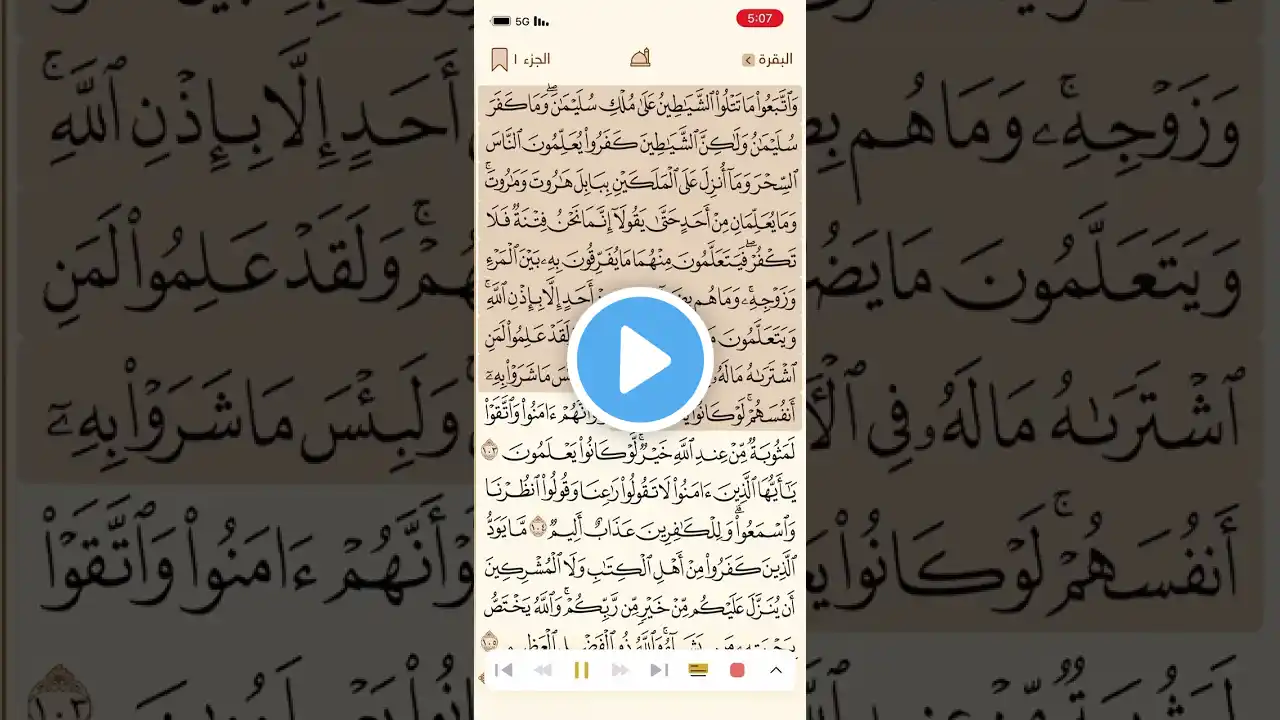 5G
5:07
البقرة
الجزء ١
وَٱتَّبَعُوا۟ مَا تَتْلُوا۟ ٱلشَّيَٰطِينُ عَلَىٰ مُلْكِ سُلَيْمَٰنَ ۖ وَمَا كَفَرَ
سُلَيْمَٰنُ وَلَٰكِنَّ ٱلشَّيَٰطِينَ كَفَرُوا۟ يُعَلِّمُونَ ٱلنَّاسَ
ٱلسِّحْرَ وَمَآ أُنزِلَ عَلَى ٱلْمَلَكَيْنِ بِبَابِلَ هَٰرُوتَ وَمَٰرُوتَ ۚ
وَمَا يُعَلِّمَانِ مِنْ أَحَدٍ حَتَّىٰ يَقُولَآ إِنَّمَا نَحْنُ فِتْنَةٌ فَلَا
تَكْفُرْ ۖ فَيَتَعَلَّمُونَ مِنْهُمَا مَا يُفَرِّقُونَ بِهِۦ بَيْنَ ٱلْمَرْءِ
وَزَوْجِهِۦ ۚ وَمَا هُم أَحَدٍ إِلَّا بِإِذْنِ ٱللَّهِ ۚ
وَيَتَعَلَّمُونَ مَا وَلَقَدْ عَلِمُوا۟ لَمَنِ
ٱشْتَرَىٰهُ مَا لَهُۥ فِى وَلَبِئْسَ مَا شَرَوْا۟ بِهِۦٓ
أَنفُسَهُمْ ۚ لَوْ كَانُوا۟ وَأَنَّهُمْ ءَامَنُوا۟ وَٱتَّقَوْا۟
لَمَثُوبَةٌ مِّنْ عِندِ ٱللَّهِ خَيْرٌ ۖ لَّوْ كَانُوا۟ يَعْلَمُونَ ١٠٣
يَٰٓأَيُّهَا ٱلَّذِينَ ءَامَنُوا۟ لَا تَقُولُوا۟ رَٰعِنَا وَقُولُوا۟ ٱنظُرْنَا
وَٱسْمَعُوا۟ ۗ وَلِلْكَٰفِرِينَ عَذَابٌ أَلِيمٌ ١٠٤ مَّا يَوَدُّ
ٱلَّذِينَ كَفَرُوا۟ مِنْ أَهْلِ ٱلْكِتَٰبِ وَلَا ٱلْمُشْرِكِينَ
أَن يُنَزَّلَ عَلَيْكُم مِّنْ خَيْرٍ مِّن رَّبِّكُمْ ۗ وَٱللَّهُ يَخْتَصُّ
بِرَحْمَتِهِۦ مَن يَشَآءُ ۚ وَٱللَّهُ ذُو ٱلْفَضْلِ ٱلْعَظِيمِ ١٠٥